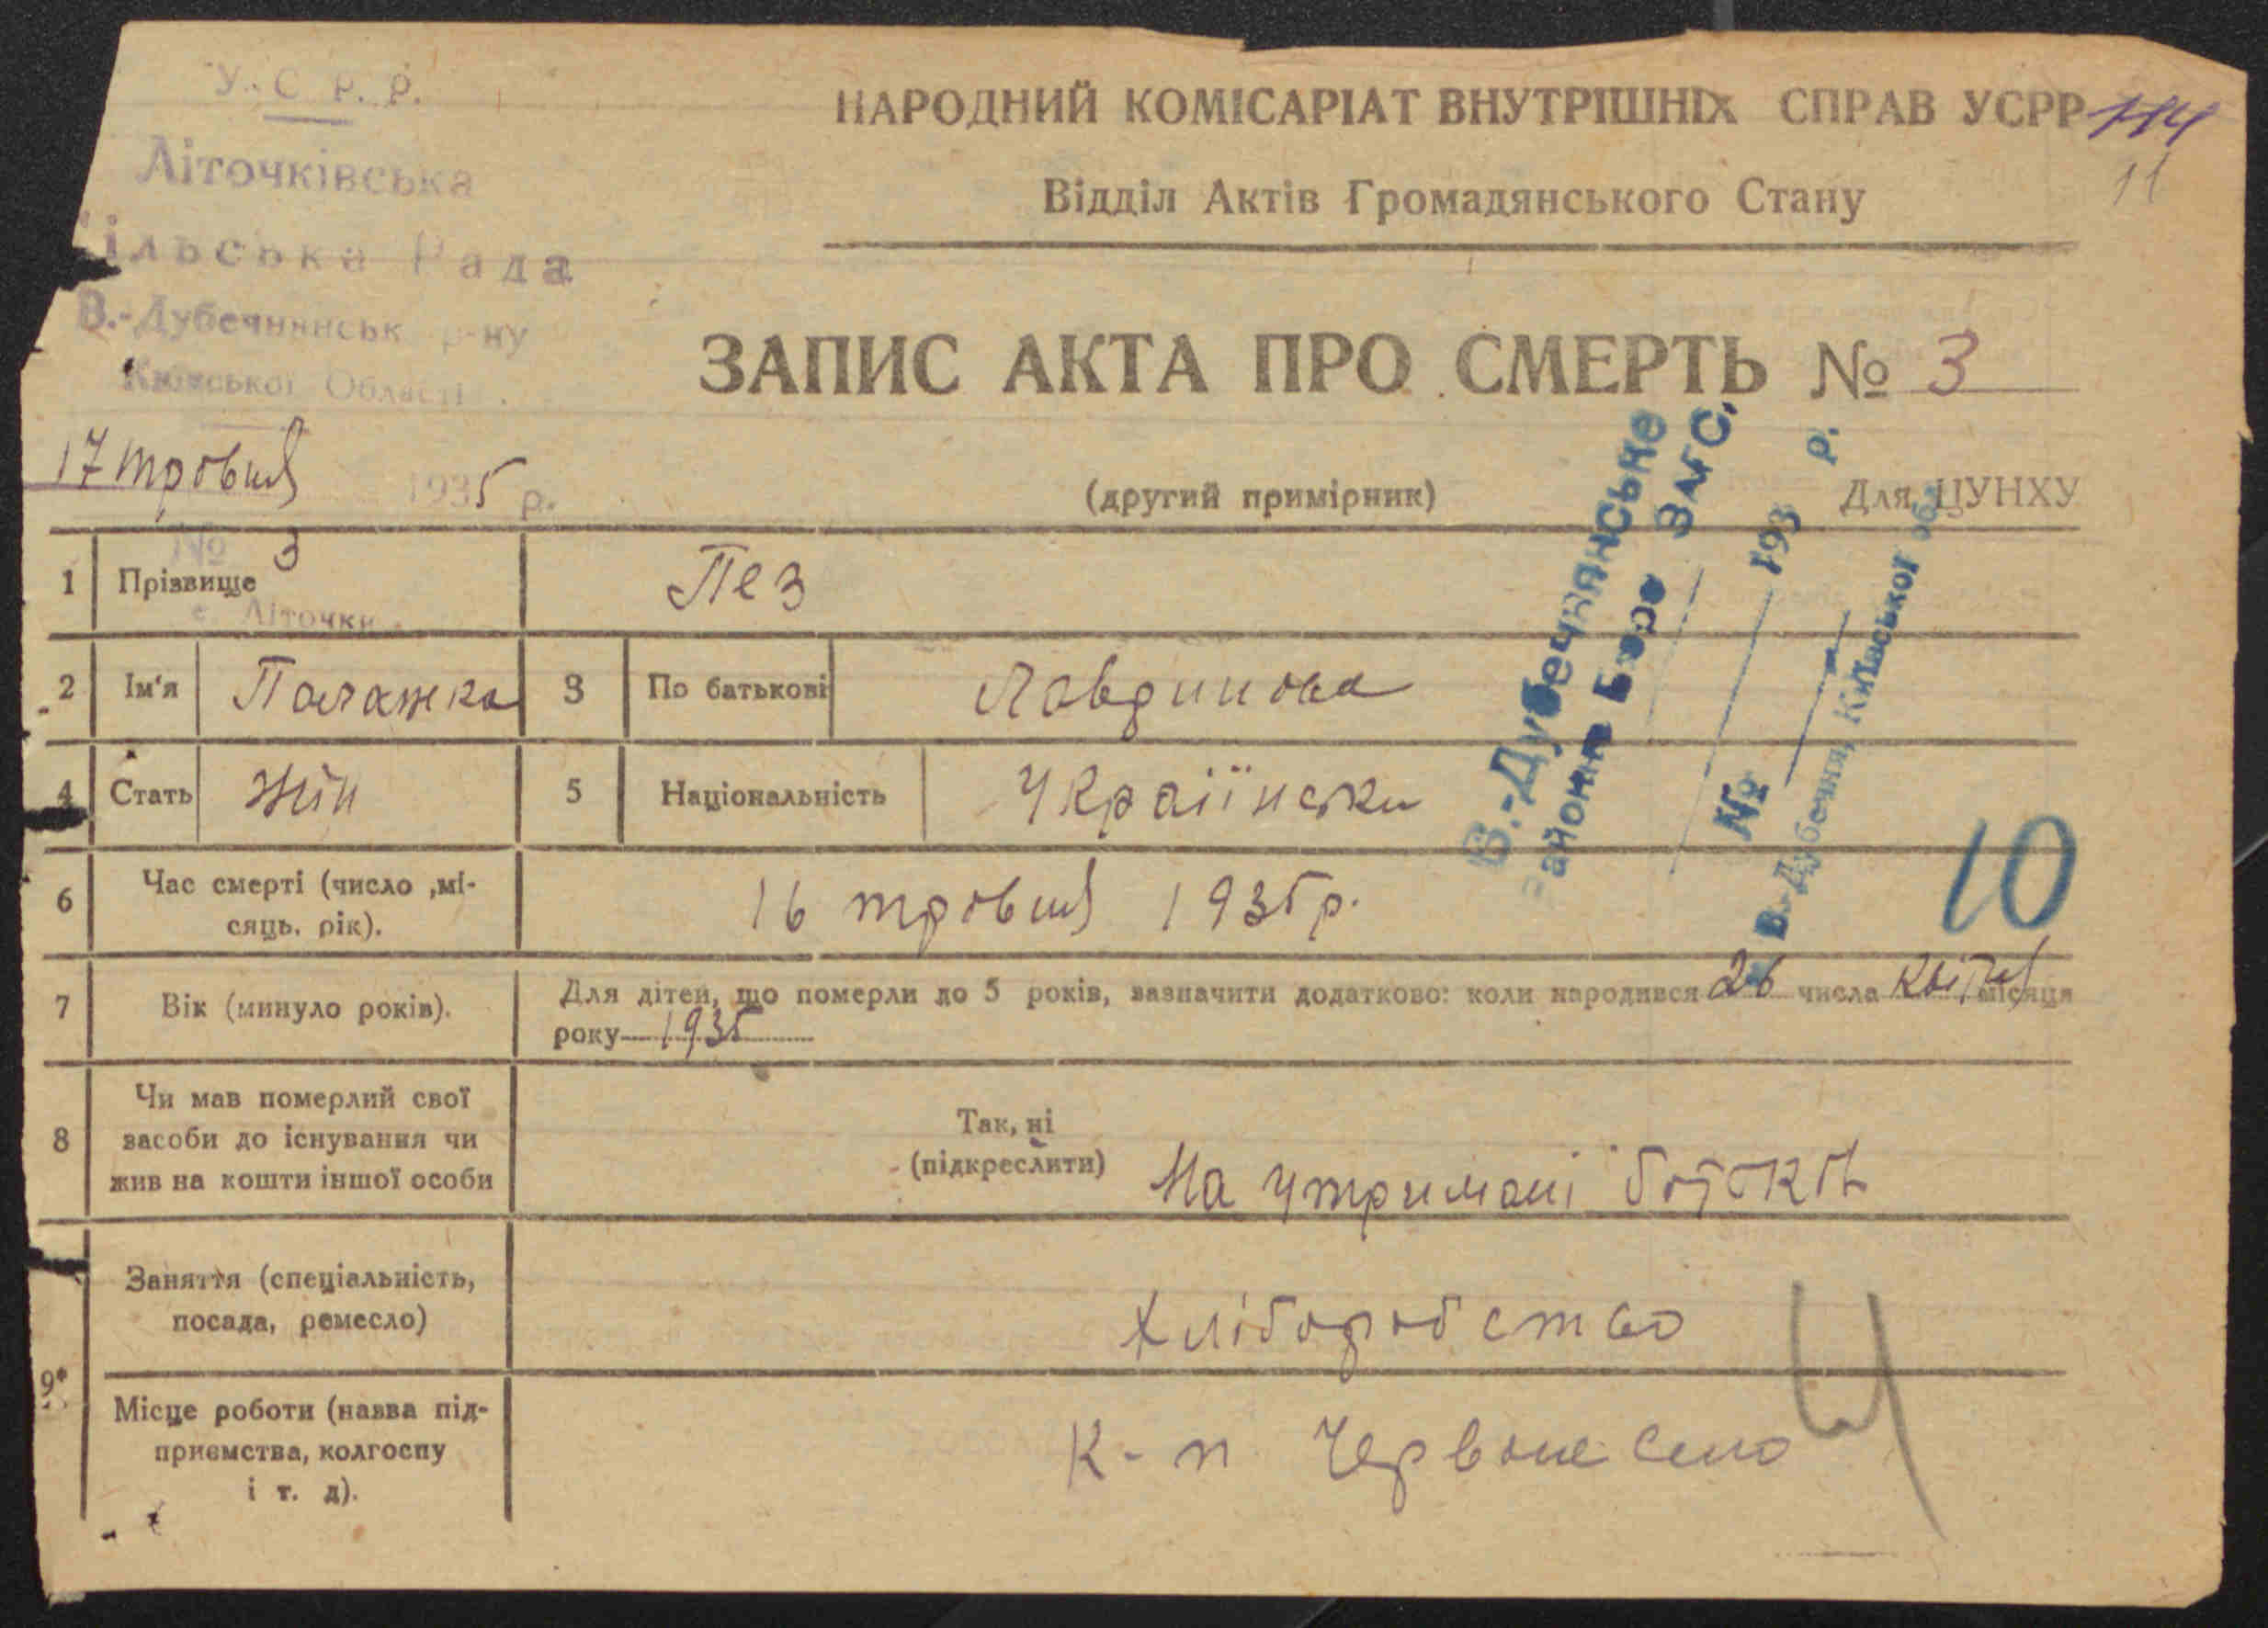 У.С.Р.Р.
Літочківська
ільська Рада
В.-Дубечнянськ р-ну
Київської Області
17 травня 1935 р.
№ 3
с. Літочки
НАРОДНИЙ КОМІСАРІАТ ВНУТРІШНІХ СПРАВ УСРР
11
Відділ Актів Громадянського Стану
ЗАПИС АКТА ПРО СМЕРТЬ № 3
(другий примірник)
Для ЦУНХУ
В.-Дубечнянське
Районне Бюро ЗАГС.
193 р.
№
В.-Дубечня, Київської обл.
1 Прізвище Пез
2 Ім'я Палажка 3 По батькові
4 Стать жін 5 Національність Українка
6 Час смерті (число ,мі-
сяць, рік). 16 травня 1935 р.
10
7 Вік (минуло років). Для дітей, що померли до 5 років, зазначити додатково: коли народився 26 числа квітня місяця
року 1935
8 Чи мав померлий свої
засоби до існування чи
жив на кошти іншої особи
Так, ні
(підкреслити) На утримані батьків
9*
Заняття (спеціальність,
посада, ремесло) Хліборобство
Місце роботи (назва під-
приємства, колгоспу
і т. д). К-п Червоне село